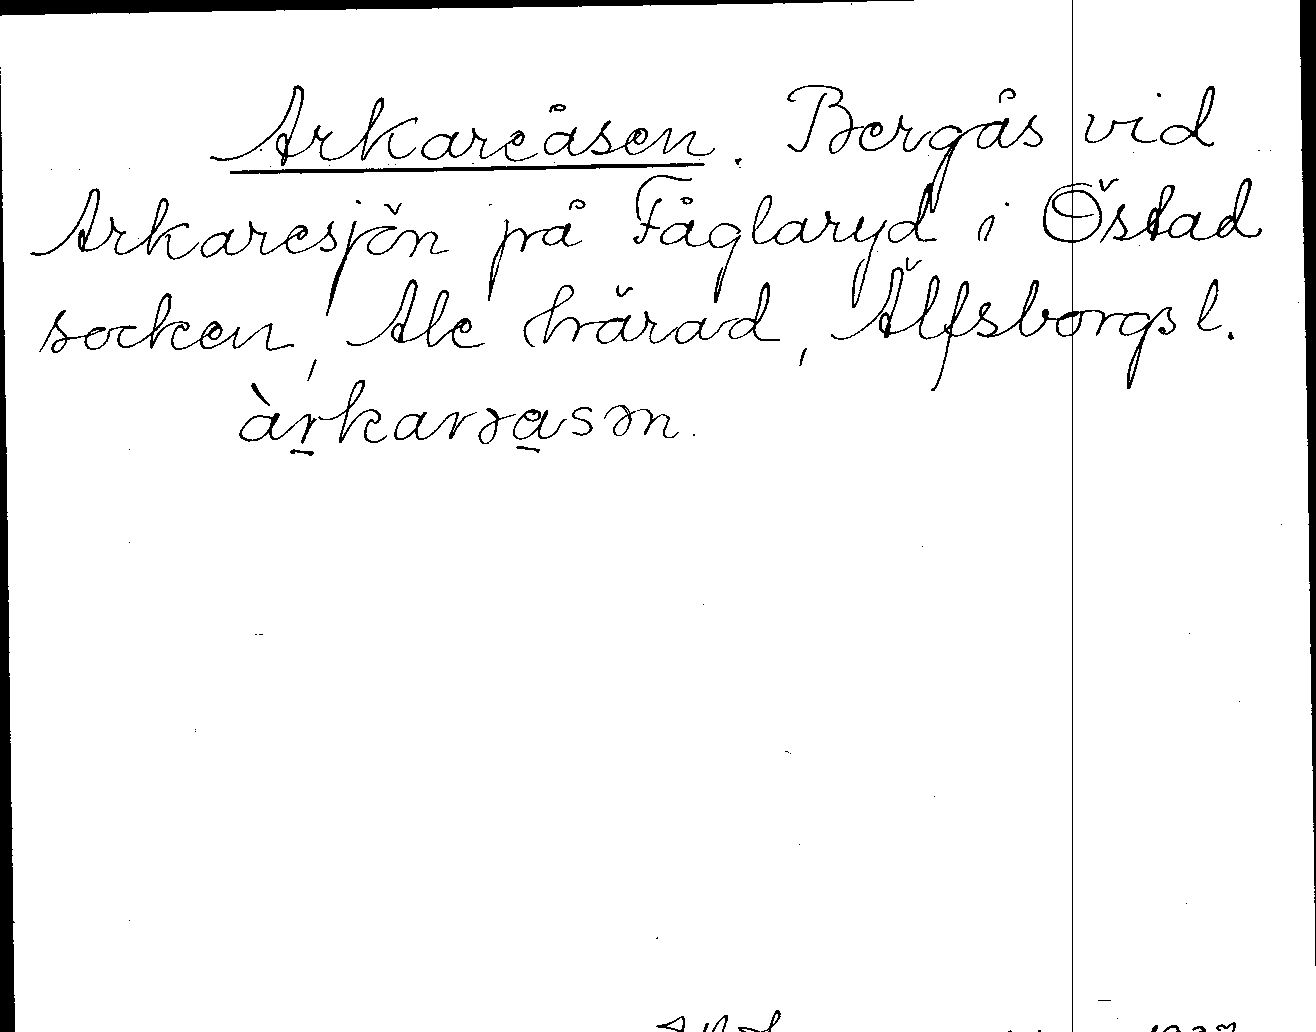 Arkareåsen. Bergås vid
Arkaresjön på Fåglaryd i Östad
socken, Ale härad, Älfsborgs l.
àr̲karəa̲sən.